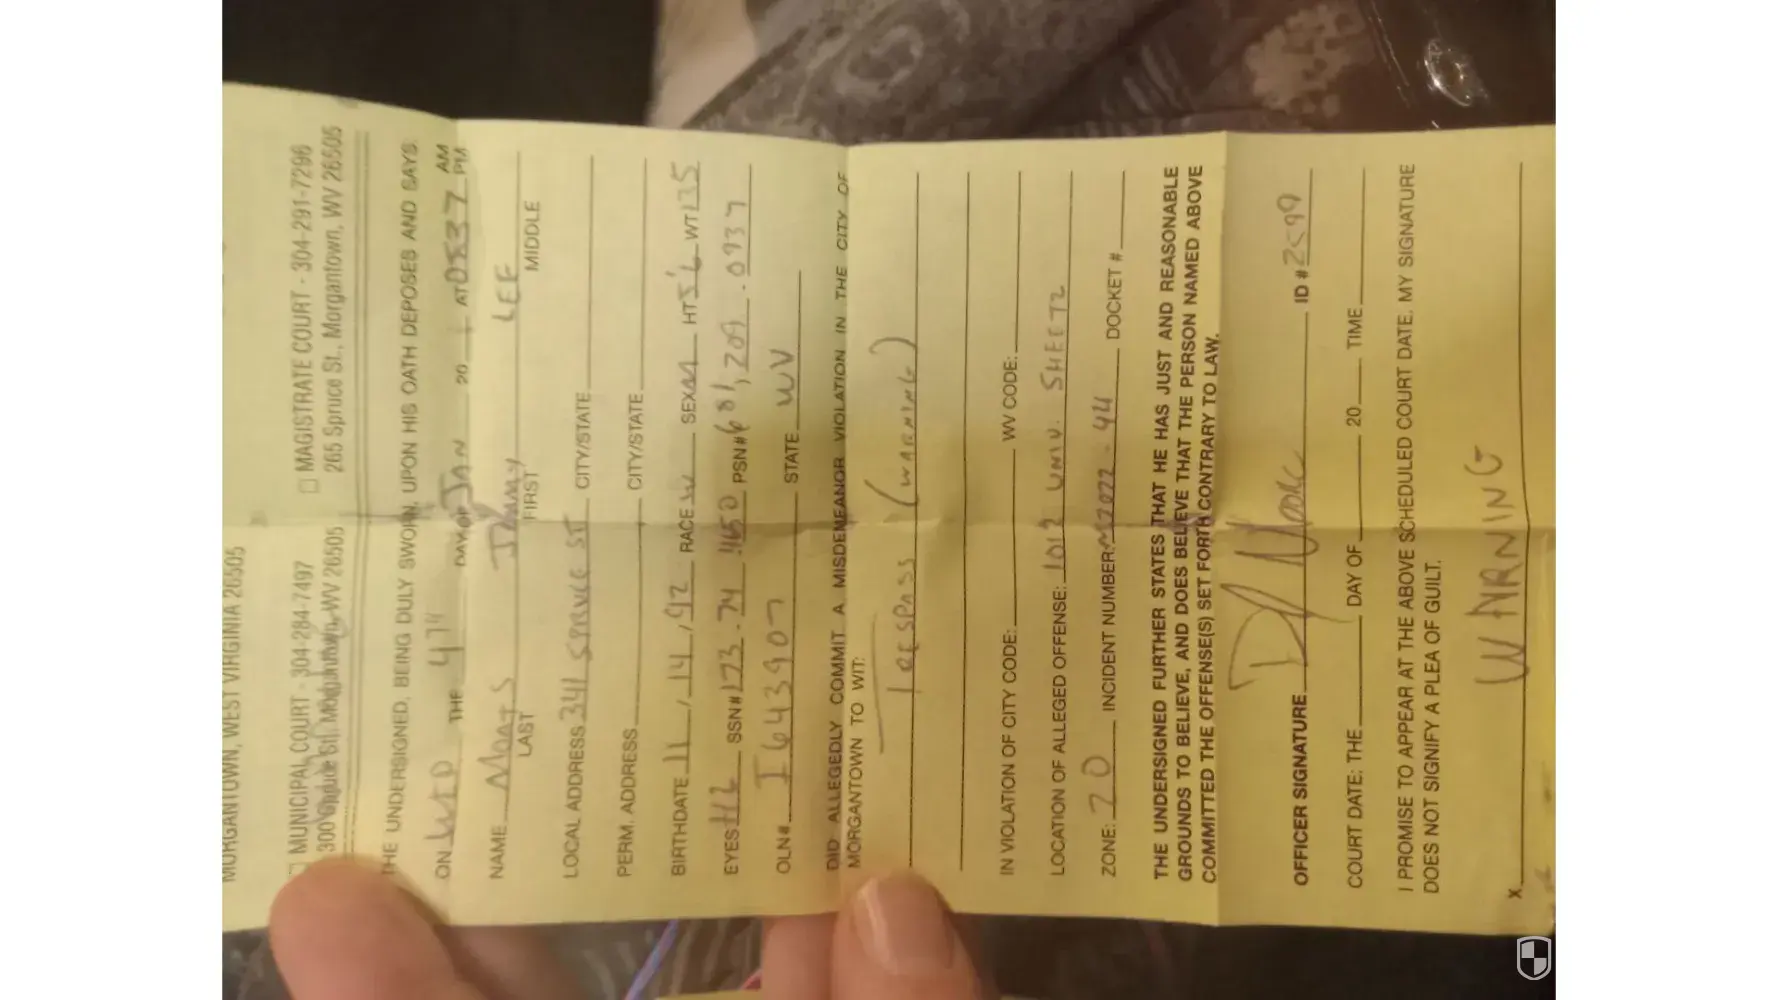 MORGANTOWN, WEST VIRGINIA 26505
MUNICIPAL COURT - 304-284-7497 MAGISTRATE COURT - 304-291-7296
300 St., Morgantown, WV 26505 265 Spruce St., Morgantown, WV 26505
THE UNDERSIGNED, BEING DULY SWORN, UPON HIS OATH DEPOSES AND SAYS:
AM
ON WED THE 4TH DAY OF JAN 20 AT 0537 PM
NAME LEE
LAST FIRST MIDDLE
LOCAL ADDRESS 341 SPRUCE ST CITY/STATE
PERM. ADDRESS CITY/STATE
BIRTHDATE 11/14/92 RACE W SEX M HT WT 135
EYES SSN# PSN#
OLN# I643907 STATE WV
DID ALLEGEDLY COMMIT A MISDEMEANOR VIOLATION IN THE CITY OF
MORGANTOWN TO WIT:
TRESPASS (WARNING)
IN VIOLATION OF CITY CODE: WV CODE:
LOCATION OF ALLEGED OFFENSE: 1012 UNIV. SHEETZ
ZONE: 20 INCIDENT NUMBER: DOCKET #
THE UNDERSIGNED FURTHER STATES THAT HE HAS JUST AND REASONABLE
GROUNDS TO BELIEVE, AND DOES BELIEVE THAT THE PERSON NAMED ABOVE
COMMITTED THE OFFENSE(S) SET FORTH CONTRARY TO LAW.
OFFICER SIGNATURE ID #
COURT DATE: THE DAY OF 20 TIME
I PROMISE TO APPEAR AT THE ABOVE SCHEDULED COURT DATE. MY SIGNATURE
DOES NOT SIGNIFY A PLEA OF GUILT.
X WARNING